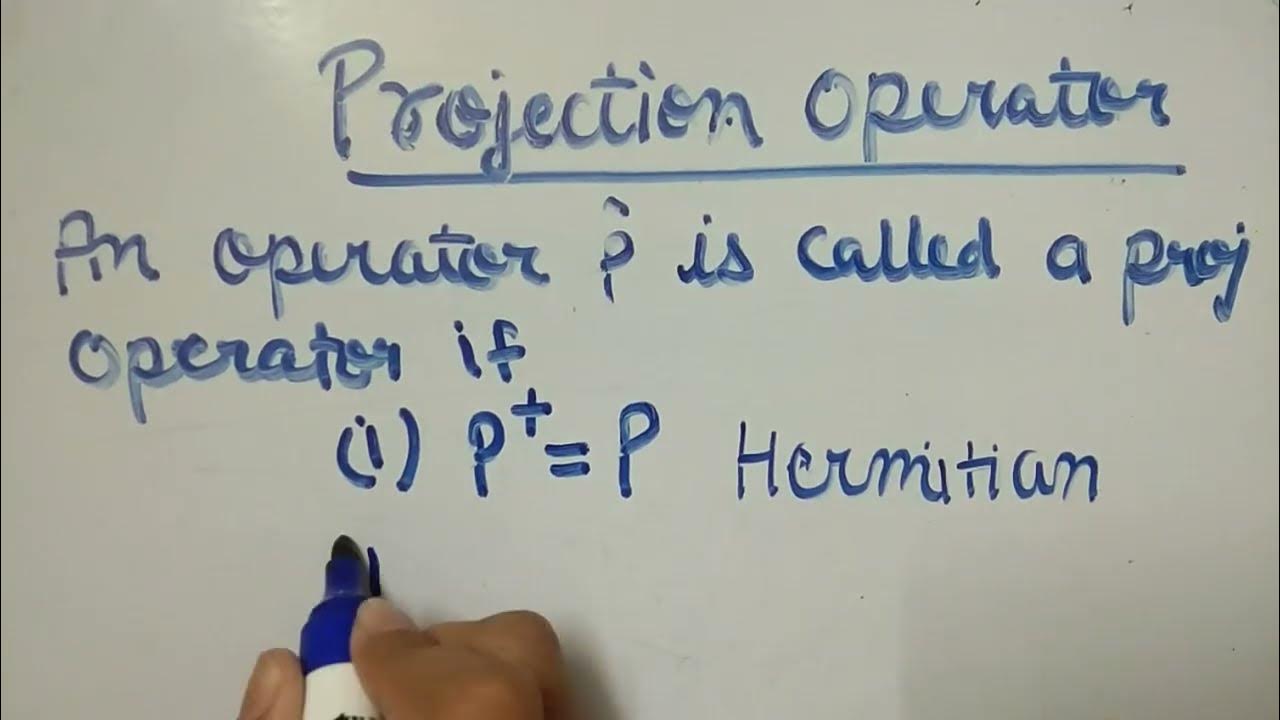 Projection Operator
An operator P̂ is called a proj
operator if
(i) P⁺ = P Hermitian